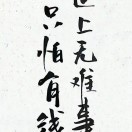 世上无难事
只怕有钱